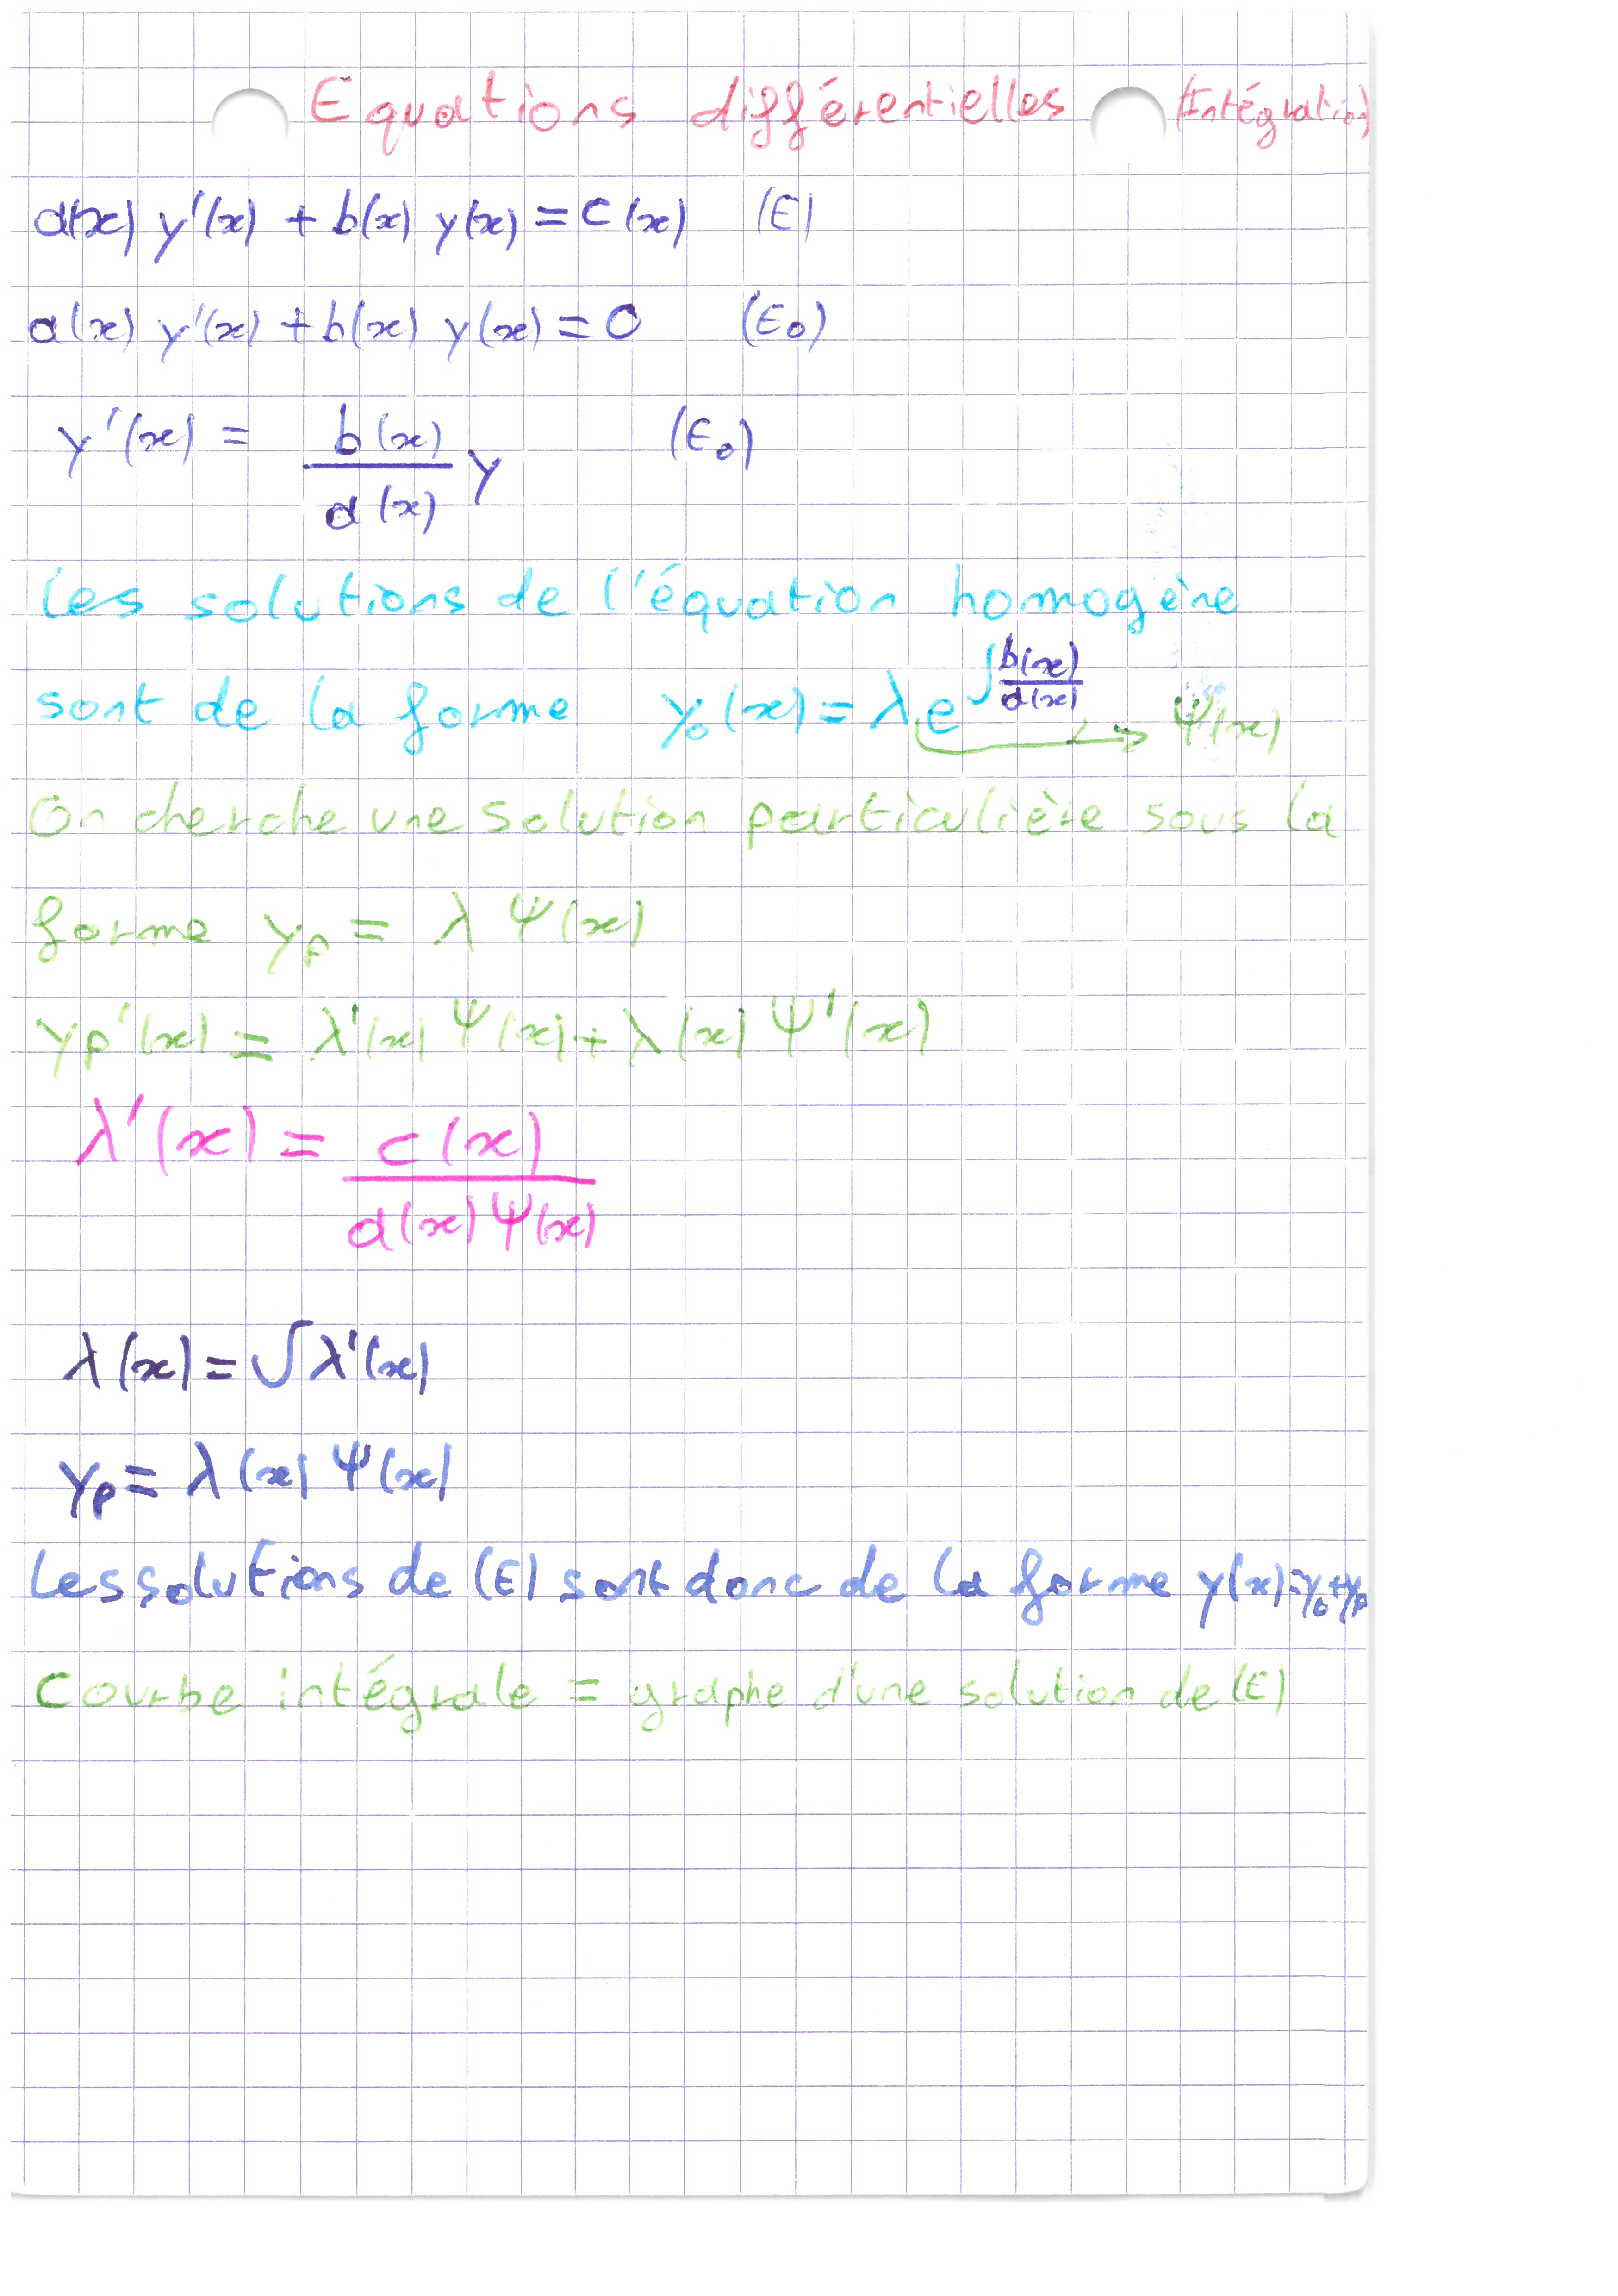 Equations différentielles (Intégration)
a(x) y'(x) + b(x) y(x) = c(x) (E)
a(x) y'(x) + b(x) y(x) = 0 (E₀)
y'(x) = b(x)/a(x) y (E₀)
Les solutions de l'équation homogène
sont de la forme y₀(x) = λ e^∫b(x)/a(x) → Ψ(x)
On cherche une solution particulière sous la
forme yₚ = λ Ψ(x)
yₚ'(x) = λ'(x) Ψ(x) + λ(x) Ψ'(x)
λ'(x) = c(x)/a(x)Ψ(x)
λ(x) = ∫λ'(x)
yₚ = λ(x) Ψ(x)
Les solutions de (E) sont donc de la forme y(x)=y₀+yₚ
Courbe intégrale = graphe d'une solution de (E)